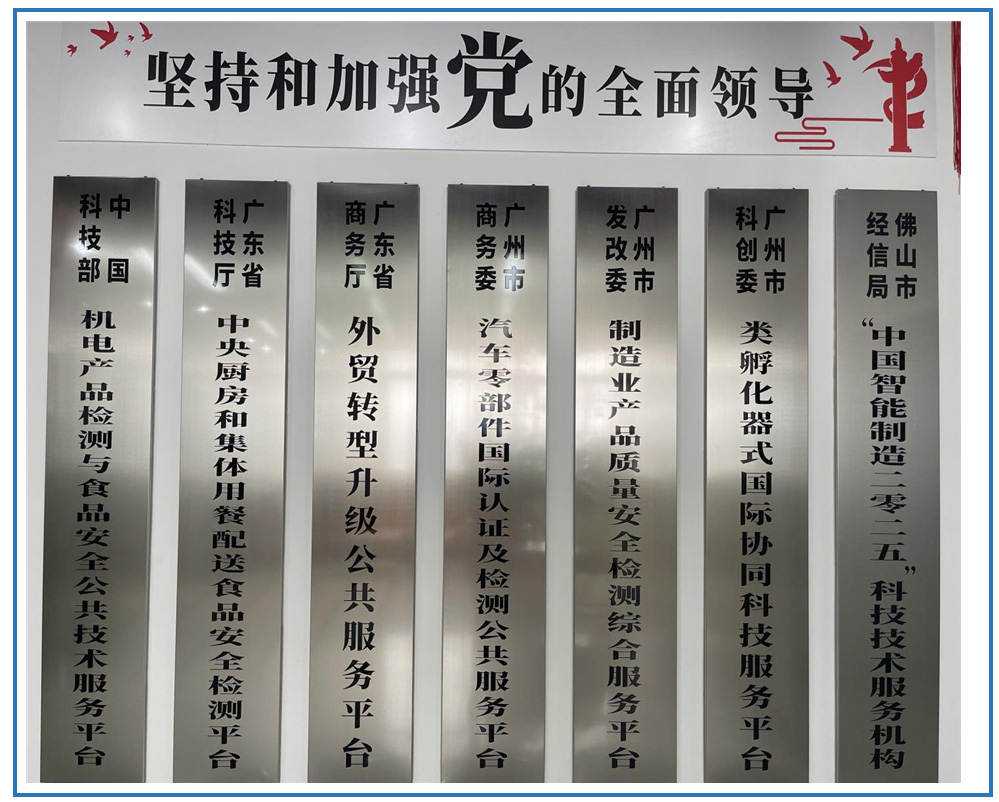 坚持和加强党的全面领导
中国
科技部
机电产品检测与食品安全公共技术服务平台
广东省
科技厅
中央厨房和集体用餐配送食品安全检测平台
广东省
商务厅
外贸转型升级公共服务平台
广州市
商务委
汽车零部件国际认证及检测公共服务平台
广州市
发改委
制造业产品质量安全检测综合服务平台
广州市
科创委
类孵化器式国际协同科技服务平台
佛山市
经信局
“中国智能制造二零二五”科技技术服务机构